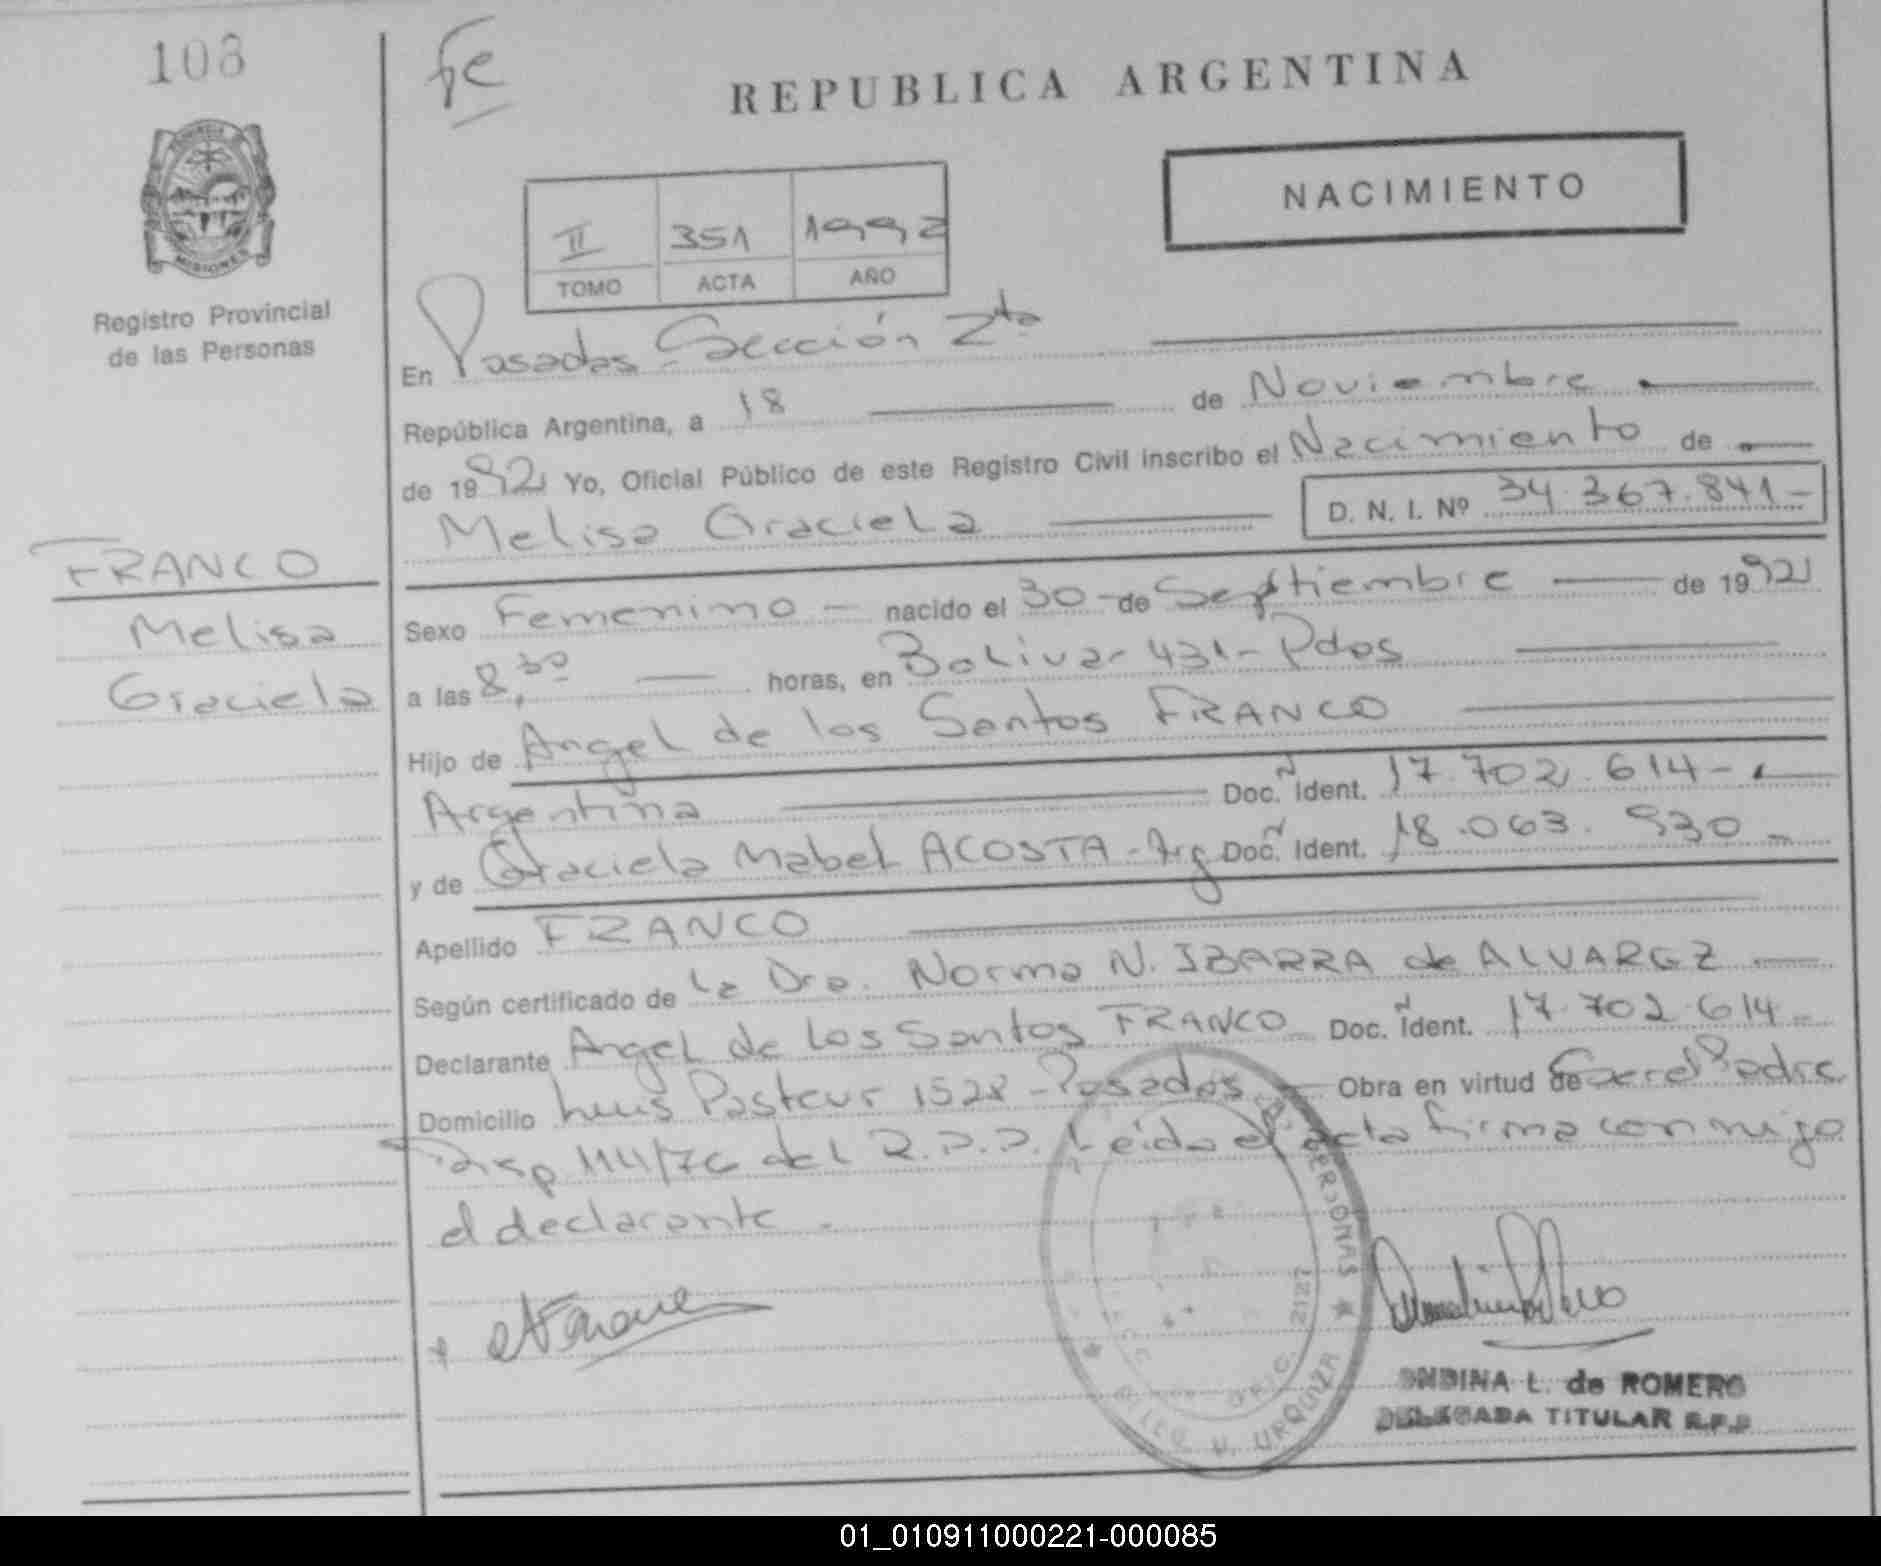 108
fe
REPUBLICA ARGENTINA
NACIMIENTO
II 351 1992
TOMO ACTA AÑO
MISIONES
Registro Provincial
de las Personas
En Posadas Sección 2ta
República Argentina, a 18 de Noviembre
de 1992 Yo, Oficial Público de este Registro Civil inscribo el Nacimiento de
Melisa Graciela D. N. I. Nº 34.367.841-
FRANCO
Melisa
Graciela
Sexo Femenino - nacido el 30 - de Septiembre de 1992
a las 8,30 horas, en Bolivar 431 - Pdas
Hijo de Angel de los Santos FRANCO
Argentina Doc. Ñ Ident. 17.702.614-
y de Graciela Mabel ACOSTA - Arg Doc. Ñ Ident. 18.063.930-
Apellido FRANCO
Según certificado de la Dra. Norma N. IBARRA de ALVAREZ
Declarante Angel de los Santos FRANCO Doc. Ñ Ident. 17.702.614-
Domicilio Luis Pasteur 1528 - Posadas - Obra en virtud de Ser el Padre
Disp 114/76 del R.P.P. Leída el acta firma conmigo
el declarante.
PERSONAS
2127
URQUIZA
ONDINA L. de ROMERO
DELEGADA TITULAR R.P.P
01_010911000221-000085